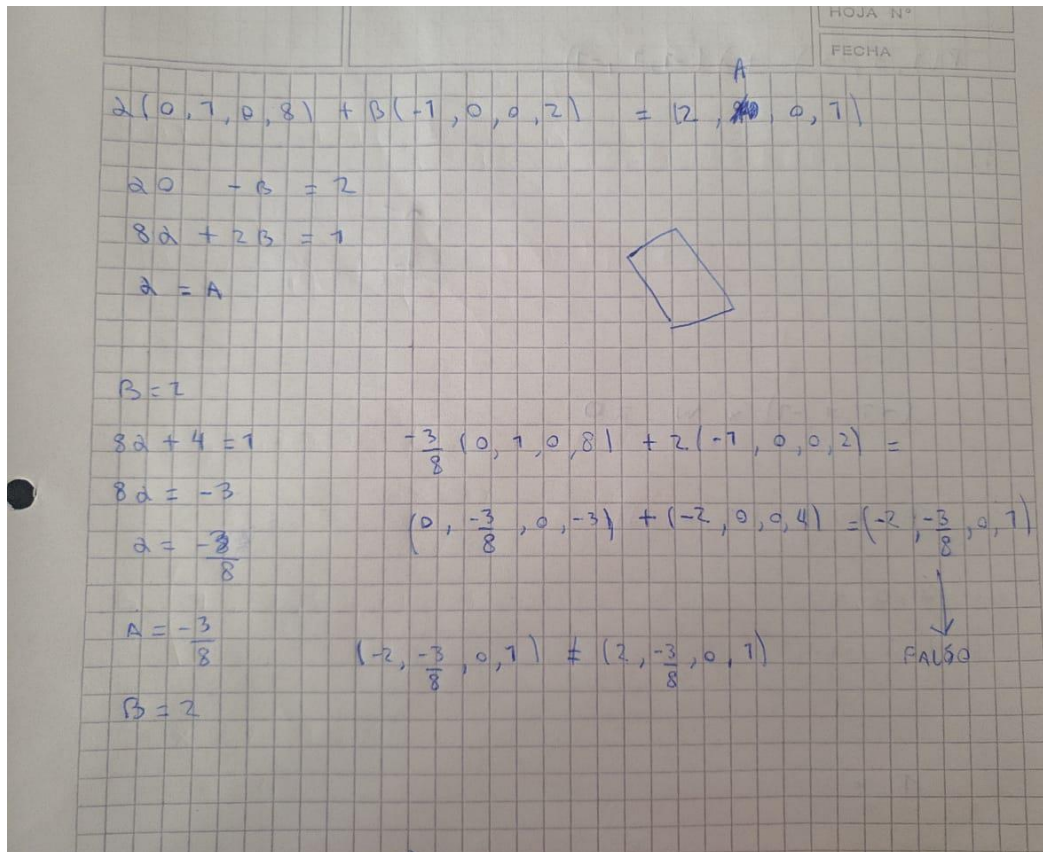 HOJA N°
FECHA
A
α(0,1,0,8) + B(-1,0,0,2) = (2, , 0, 1)
α0 - B = 2
8α + 2B = 1
α = A
B = 2
8α + 4 = 1
8α = -3
α = -3/8
A = -3/8
B = 2
-3/8 (0,1,0,8) + 2(-1,0,0,2) =
(0, -3/8, 0, -3) + (-2, 0, 0, 4) = (-2, -3/8, 0, 1)
(-2, -3/8, 0, 1) ≠ (2, -3/8, 0, 1)
FALSO